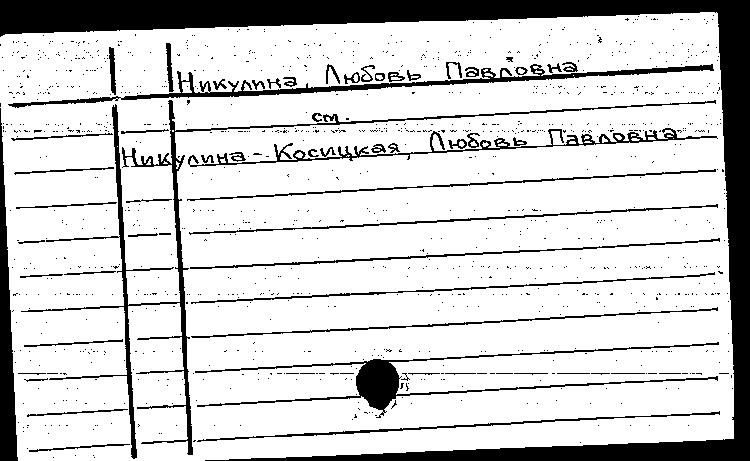 Никулина, Любовь Павловна
см.
Никулина-Косицкая, Любовь Павловна.